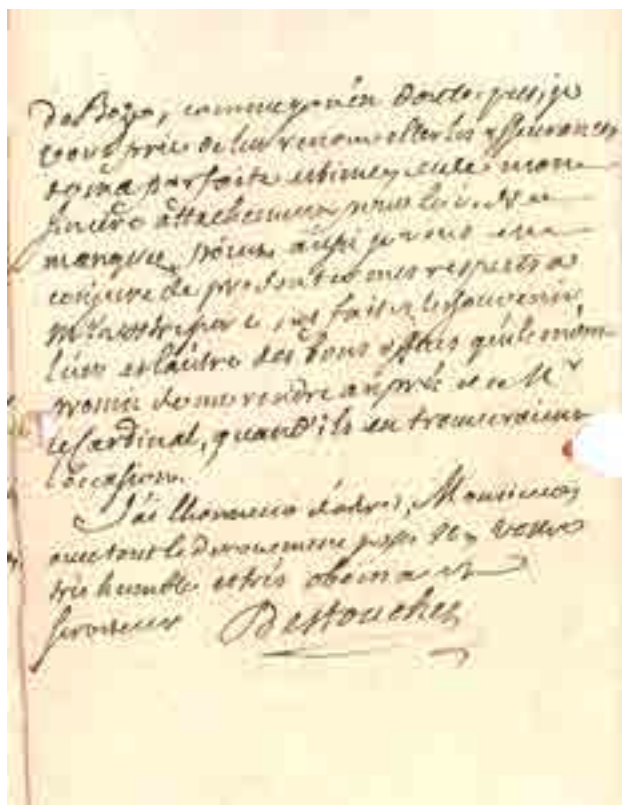 de Boze, comme je n'en doute pas, je
vous prie de luy renouveller les assurances
de ma parfaite estime, et de mon
sincere attachement pour lui. Ne
manquez pas aussi je vous en
conjure de presenter mes respects a
Mr et de faire souvenir
l'un et l'autre des bons offices qu'ils m'ont
promis de me rendre auprès de Mr
le Cardinal, quand ils en trouveroient
l'occasion.
J'ai l'honneur d'être, Monsieur,
avec tout le devouement possible, votre
très humble et très obeissant
serviteur Destouches